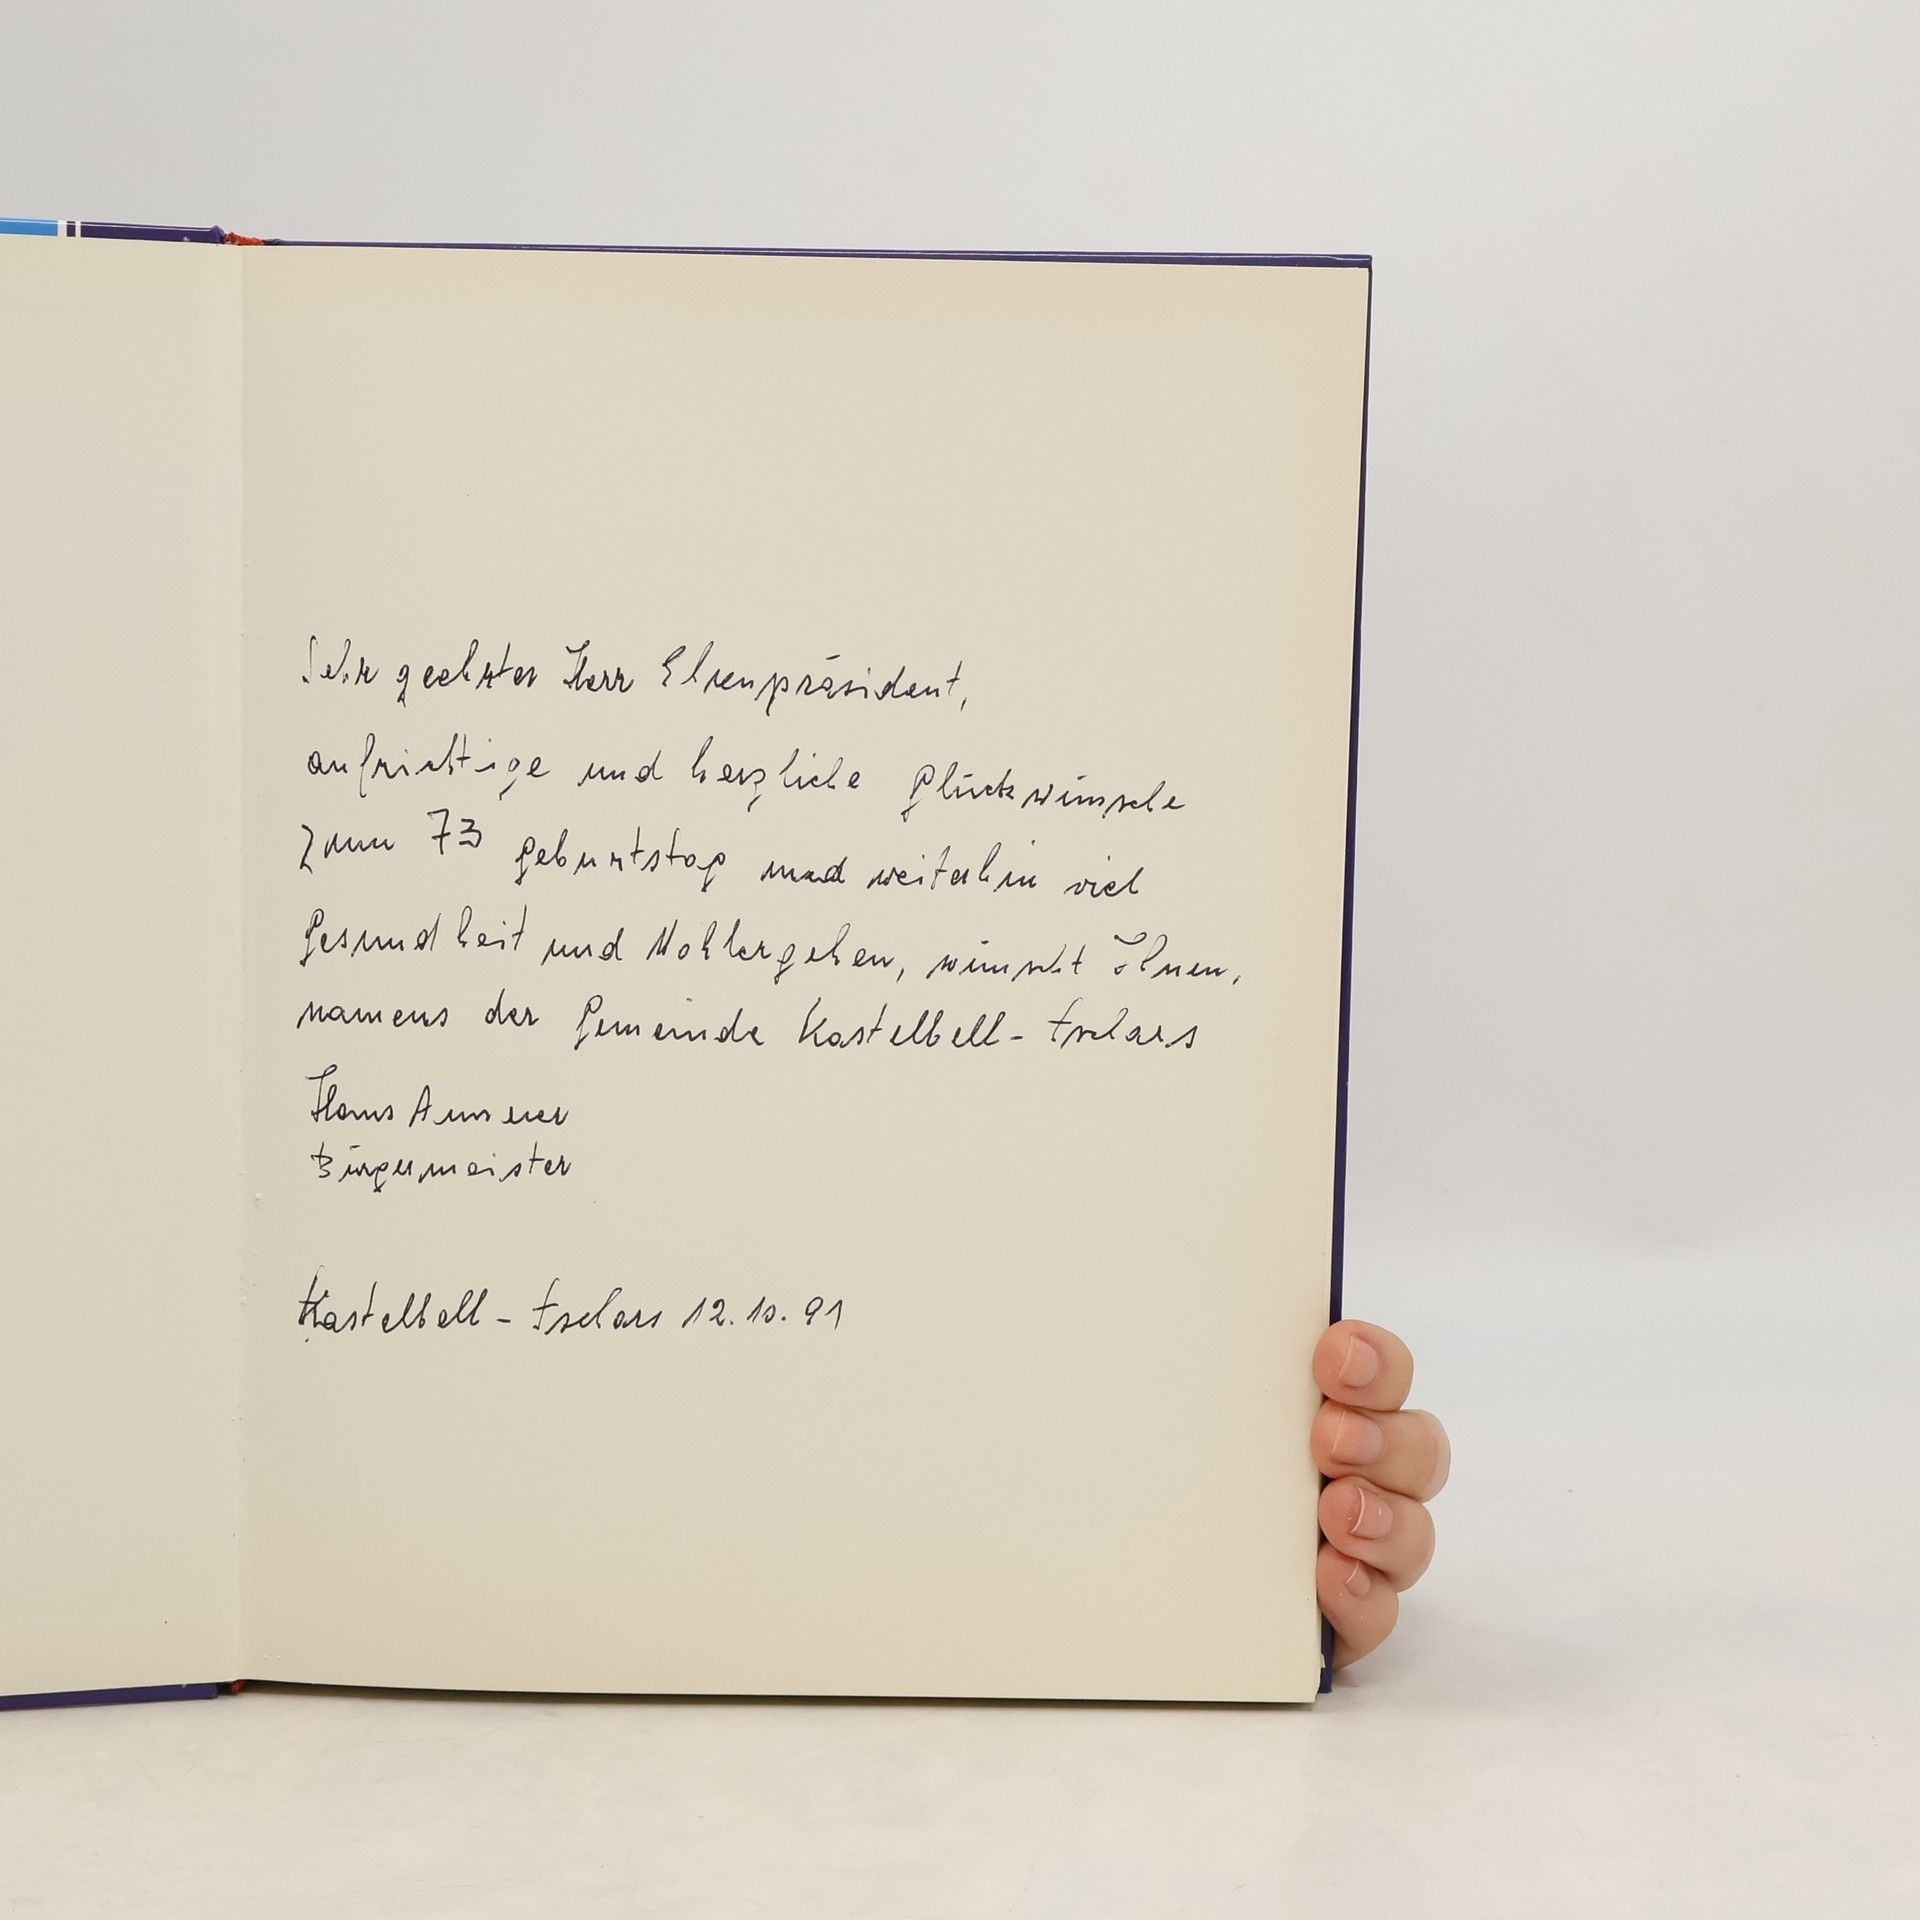 Sehr geehrter Herr Ehrenpräsident,
aufrichtige und herzliche Glückwünsche
zum 73 Geburtstag und weiterhin viel
Gesundheit und Wohlergehen, wünscht Ihnen,
namens der Gemeinde Kastelbell - Tschars
Hans
Bürgermeister
Kastelbell - Tschars 12.10.91